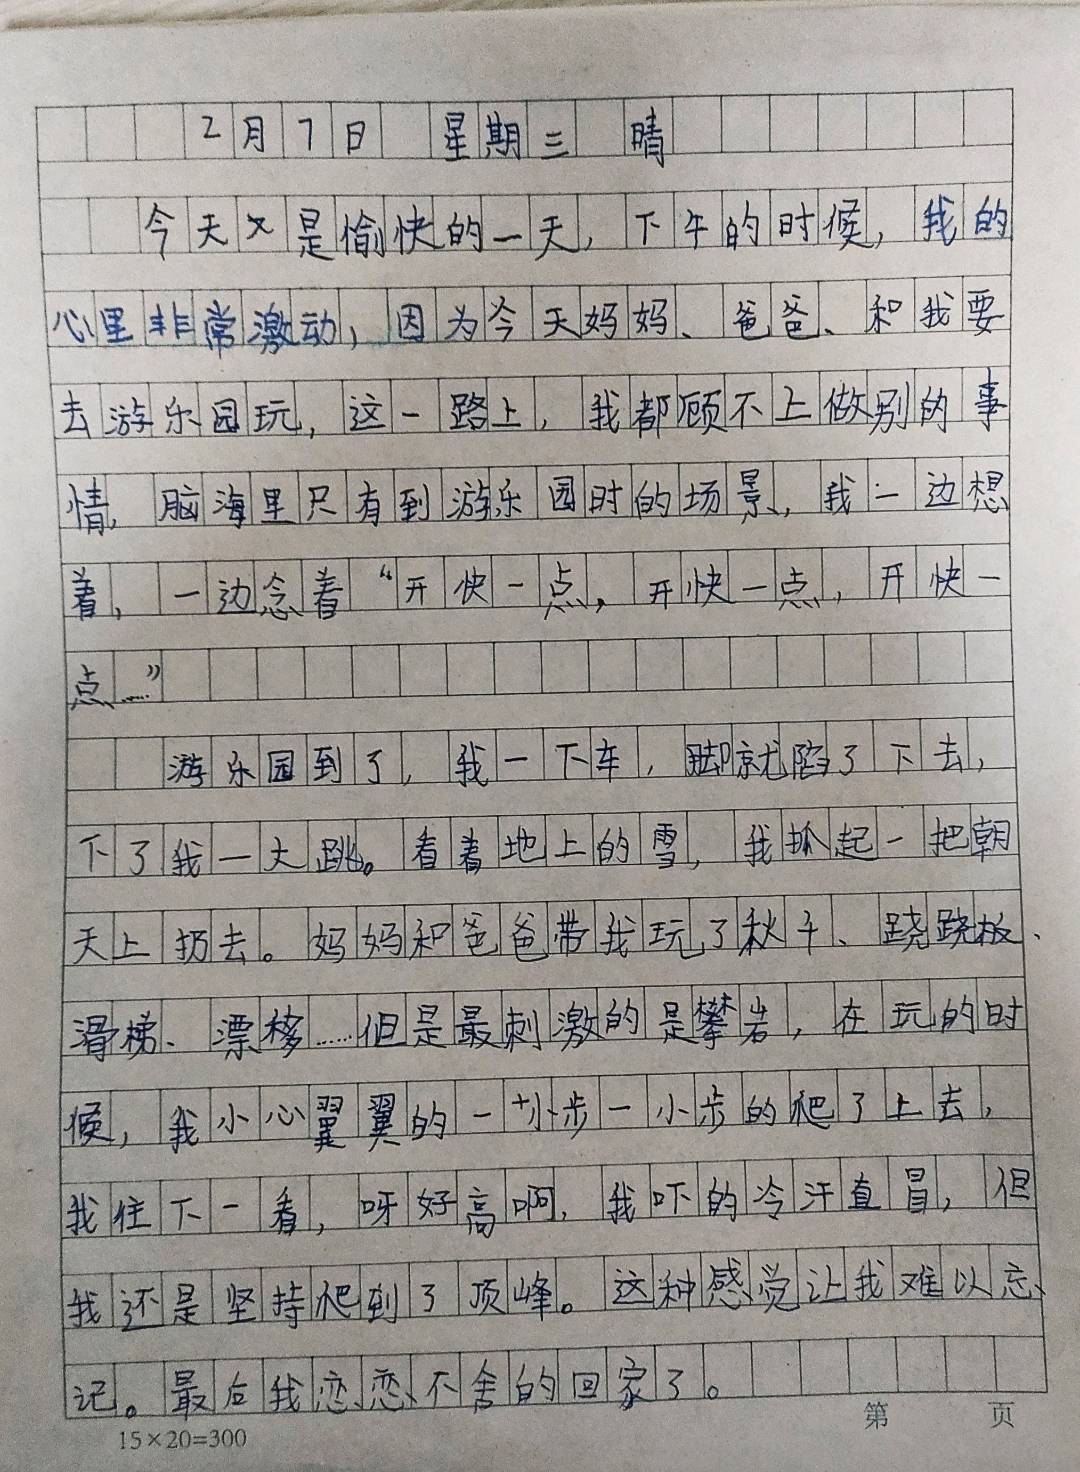 2月7日 星期三 晴
今天又是愉快的一天，下午的时候，我的
心里非常激动，因为今天妈妈、爸爸、和我要
去游乐园玩，这一路上，我都顾不上做别的事
情，脑海里只有到游乐园时的场景，我一边想
着，一边念着“开快一点，开快一点，开快一
点……”
游乐园到了，我一下车，脚就陷了下去，
下了我一大跳。看着地上的雪，我抓起一把朝
天上扔去。妈妈和爸爸带我玩了秋千、跷跷板、
滑梯、漂移……但是最刺激的是攀岩，在玩的时
候，我小心翼翼的一小步一小步的爬了上去，
我往下一看，呀好高啊，我吓的冷汗直冒，但
我还是坚持爬到了顶峰。这种感觉让我难以忘
记。最后我恋恋不舍的回家了。
15×20=300
第 页